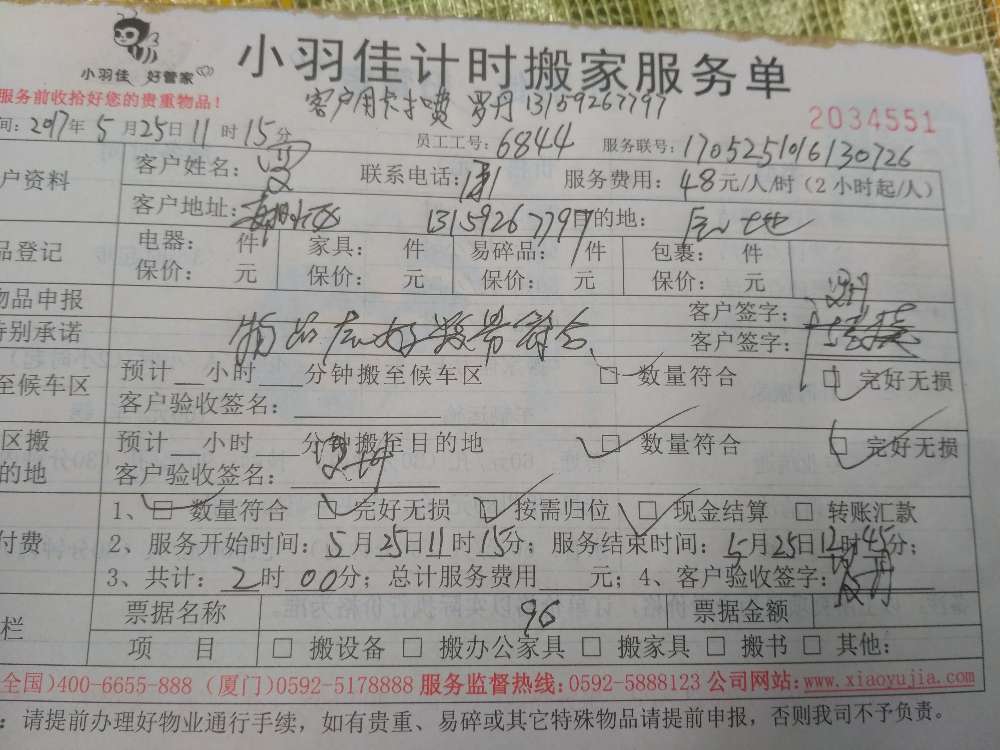 小羽佳 好管家
小羽佳计时搬家服务单
服务前收拾好您的贵重物品！
客户用卡扣费 罗丹 13159267797
2034551
间：2017年5月25日11时15分 员工工号：6844 服务联号：170525106130726
户资料 客户姓名： 联系电话： 服务费用：48元/人/时（2小时起/人）
客户地址： 13159267797 目的地：
品登记 电器： 件 家具： 件 易碎品： 件 包裹： 件
保价： 元 保价： 元 保价： 元 保价： 元
物品申报 客户签字：
特别承诺 物品完好数量符合 客户签字：
至候车区 预计 小时 分钟搬至候车区 □ 数量符合 □ 完好无损
客户验收签名：
区搬 预计 小时 分钟搬至目的地 □ 数量符合 □ 完好无损
的地 客户验收签名：
1、□ 数量符合 □ 完好无损 □ 按需归位 □ 现金结算 □ 转账汇款
付费 2、服务开始时间：5月25日11时15分；服务结束时间：5月25日12时45分；
3、共计：2时00分；总计服务费用 元；4、客户验收签字：
栏 票据名称 96 票据金额
项 目 □ 搬设备 □ 搬办公家具 □ 搬家具 □ 搬书 □ 其他：
全国）400-6655-888（厦门）0592-5178888 服务监督热线：0592-5888123 公司网站：www.xiaoyujia.com
：请提前办理好物业通行手续，如有贵重、易碎或其它特殊物品请提前申报，否则我司不予负责。